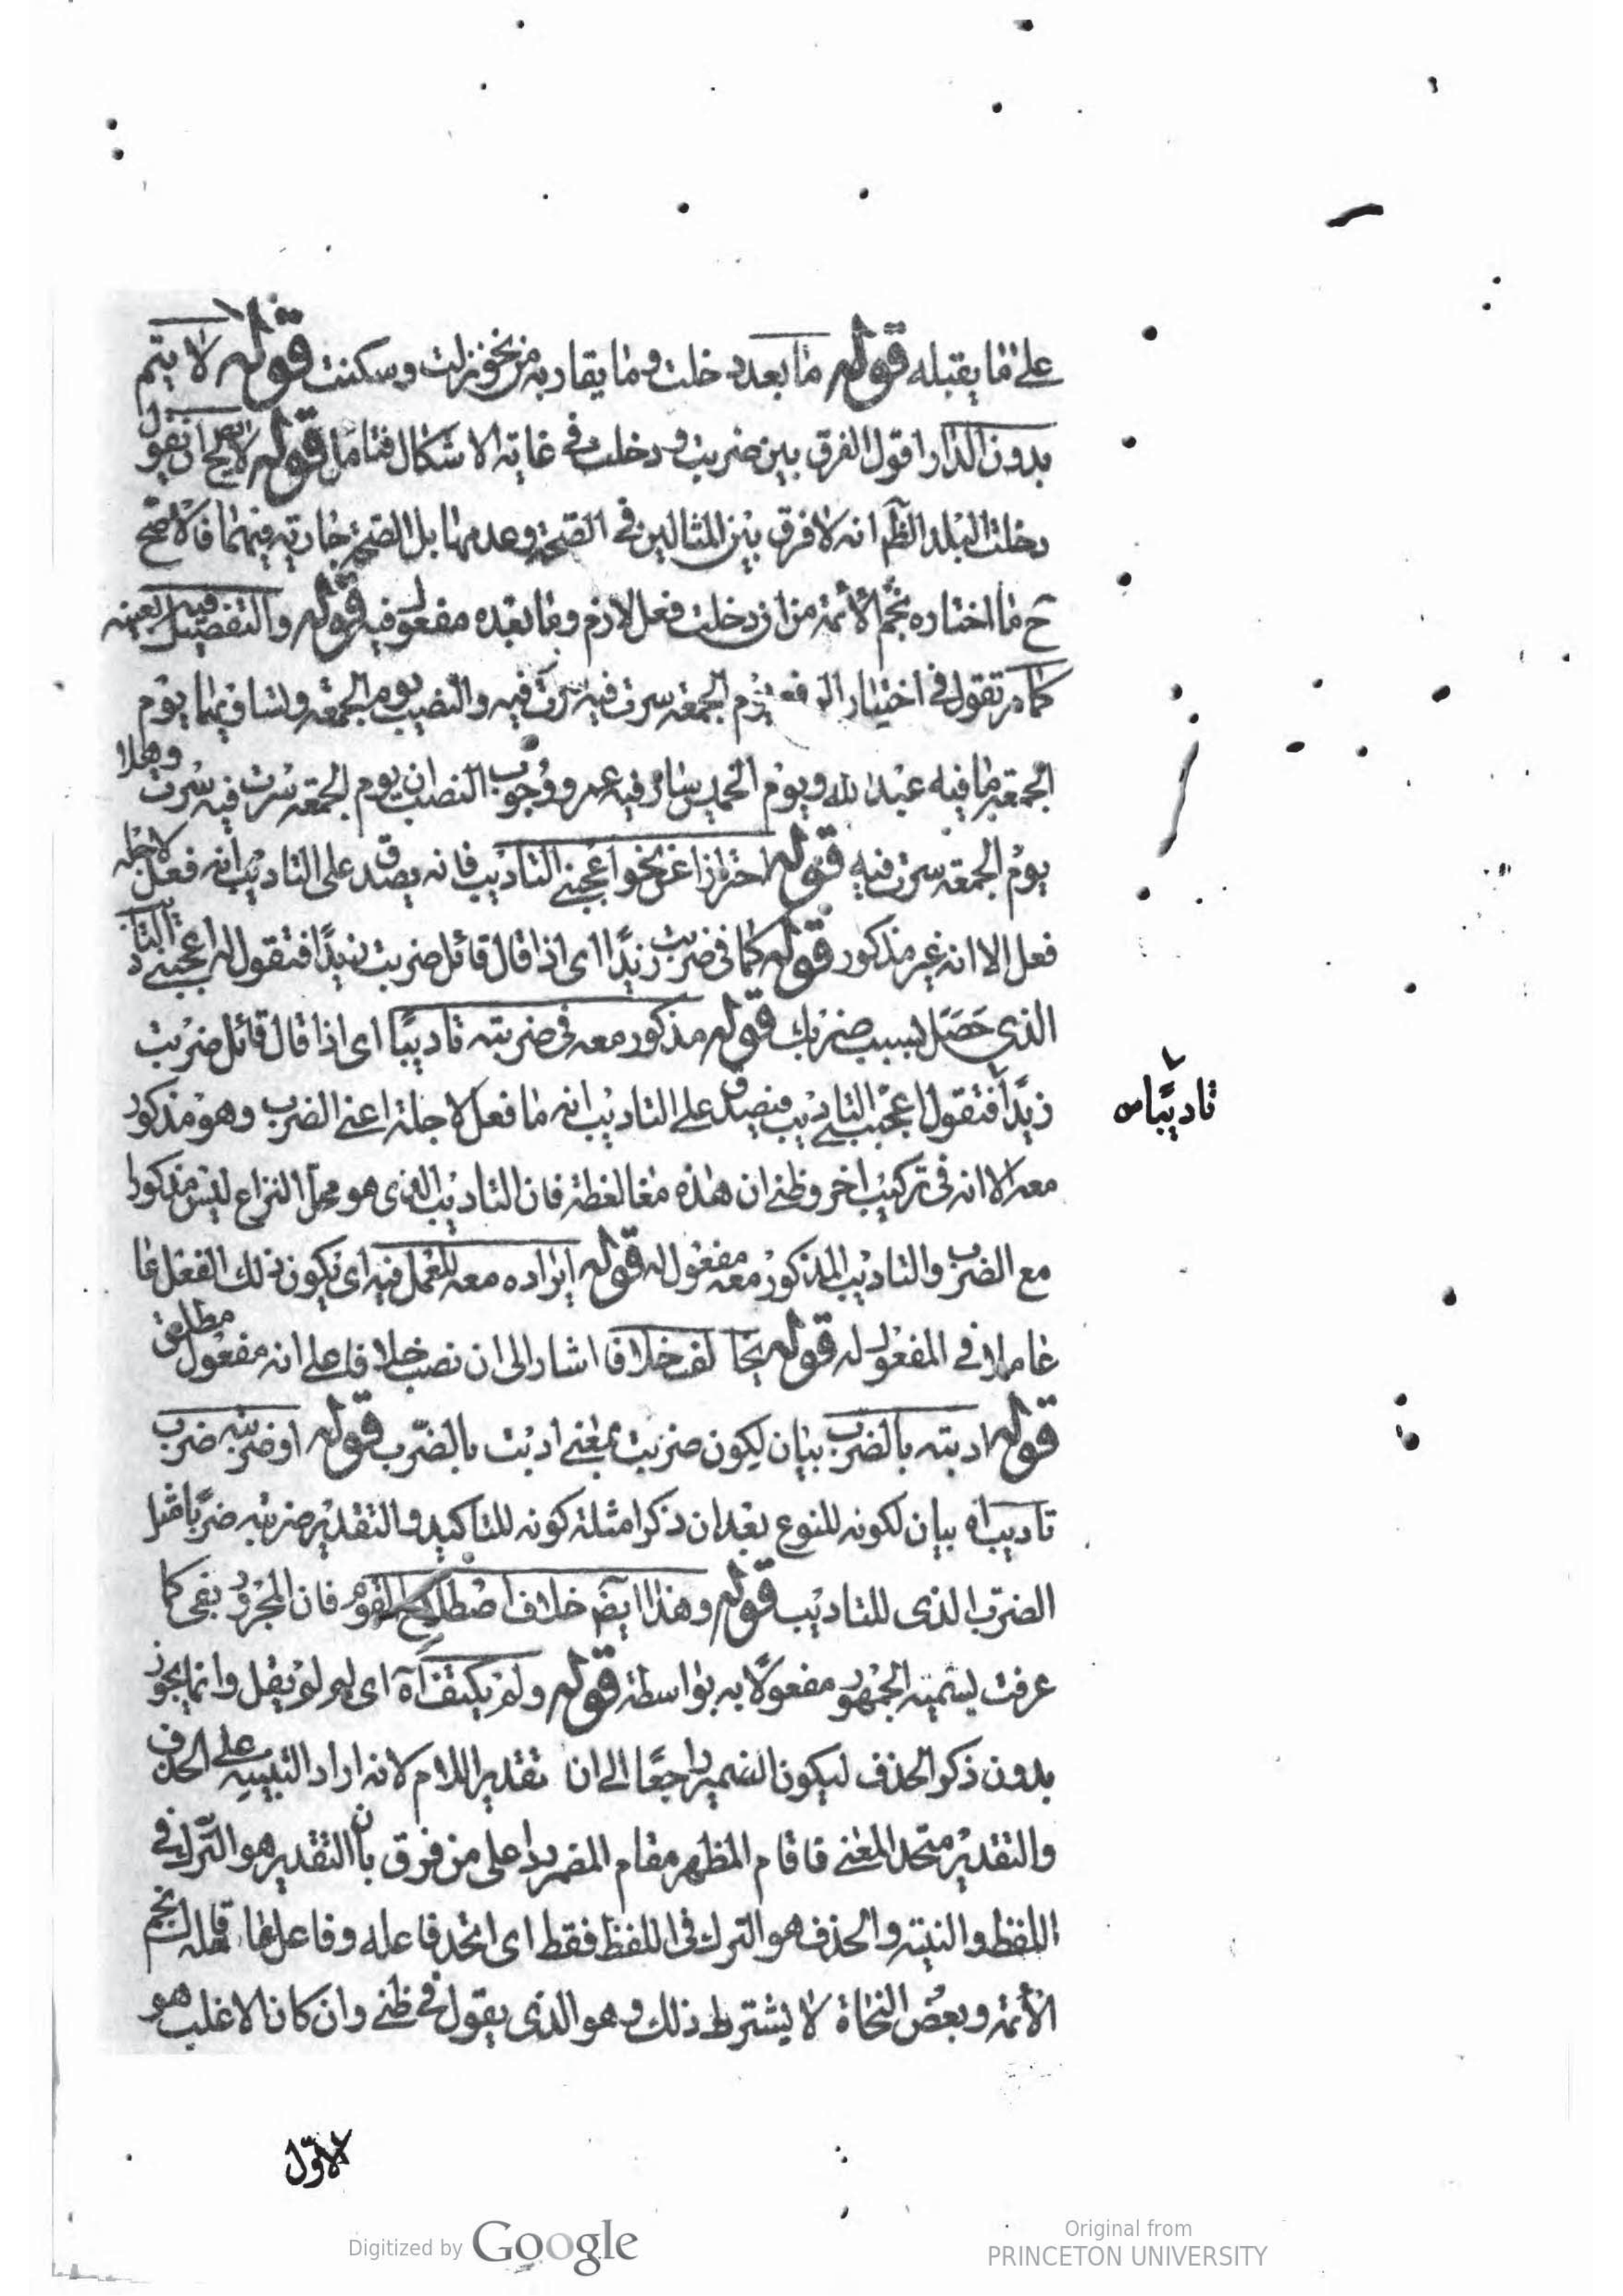 على ما يقبله قوله ما بعد دخلت وما يقاربه من نحو نزلت وسكنت قوله لا يتم
بدون الدار اقول الفرق بين ضربت ودخلت في غاية الاشكال فتامل قوله ان يقول
دخلت البلد الظم انه لا فرق بين المثالين في الصحة وعدمها بل الصحة جارية فيهما فالاصح
ح ما اختاره نجم الأئمة من ان دخلت فعل لازم وما بعده مفعول فيه قوله والتفصيل فيه بعينه
كما مر تقول في اختيار الرفع يوم الجمعة سرت فيه والنصب يوم الجمعة وتساويهما يوم
الجمعة ما فيه عبد الله ويوم الخميس سار فيه عمرو ووجوب النصب ان يوم الجمعة سرت فيه سرت وهلا
يوم الجمعة سرت فيه قوله احتراز عن نحو اعجبني التاديب فانه يصدق على التاديب انه فعل لاجله
فعل الا انه غير مذكور قوله كما في ضربت زيدًا اى اذا قال قائل ضربت زيدًا فتقول له اعجبني التاد
الذي حصل بسبب ضربك قوله مذكور معه في ضربته تاديبًا اى اذا قال قائل ضربت
زيدًا فتقول اعجبني التاديب فيصدق على التاديب انه ما فعل لاجله اعنى الضرب وهو مذكور
تاديبًا س
معه الا انه في تركيب اخر وظني ان هذه مغالطة فان التاديب الذى هو محل النزاع ليس مذكورا
مع الضرب والتاديب المذكور معه مفعول له قوله ايراده معه للعمل فيه اى يكون ذلك الفعل عا
عاملا في المفعول له قوله يخالف خلافا اشار الى ان نصب خلافا على انه مفعول مطلق
قوله ادبته بالضرب بيان لكون ضربت بمعنى ادبت بالضرب قوله او ضربته ضرب
تاديب اه بيان لكونه للنوع بعد ان ذكر امثلة كونه للتاكيد والتقدير ضربته ضربًا مثل
الضرب الذى للتاديب قوله وهذا ايض خلاف اصطلاح القوم فان المجرور بفى كما
عرفت يسميه الجمهور مفعولًا به بواسطة قوله ولم يكتف اه اى لم لم يقل وانما يجوز
بدون ذكر الحذف ليكون الضمير راجعًا الى ان تقدير اللام لانه اراد التنبيه على الحذف
والتقدير متحد المعنى فاقام المظهر مقام المضمر ردا على من فرق بان التقدير هو الترك في
اللفظ والنية والحذف هو الترك في اللفظ فقط اى اتحد فاعله وفاعل عامله قال نجم
الأئمة وبعض النحاة لا يشترط ذلك وهو الذى يقول في ظني وان كان الاغلب هو
الاوّل
Digitized by Google
Original from
PRINCETON UNIVERSITY